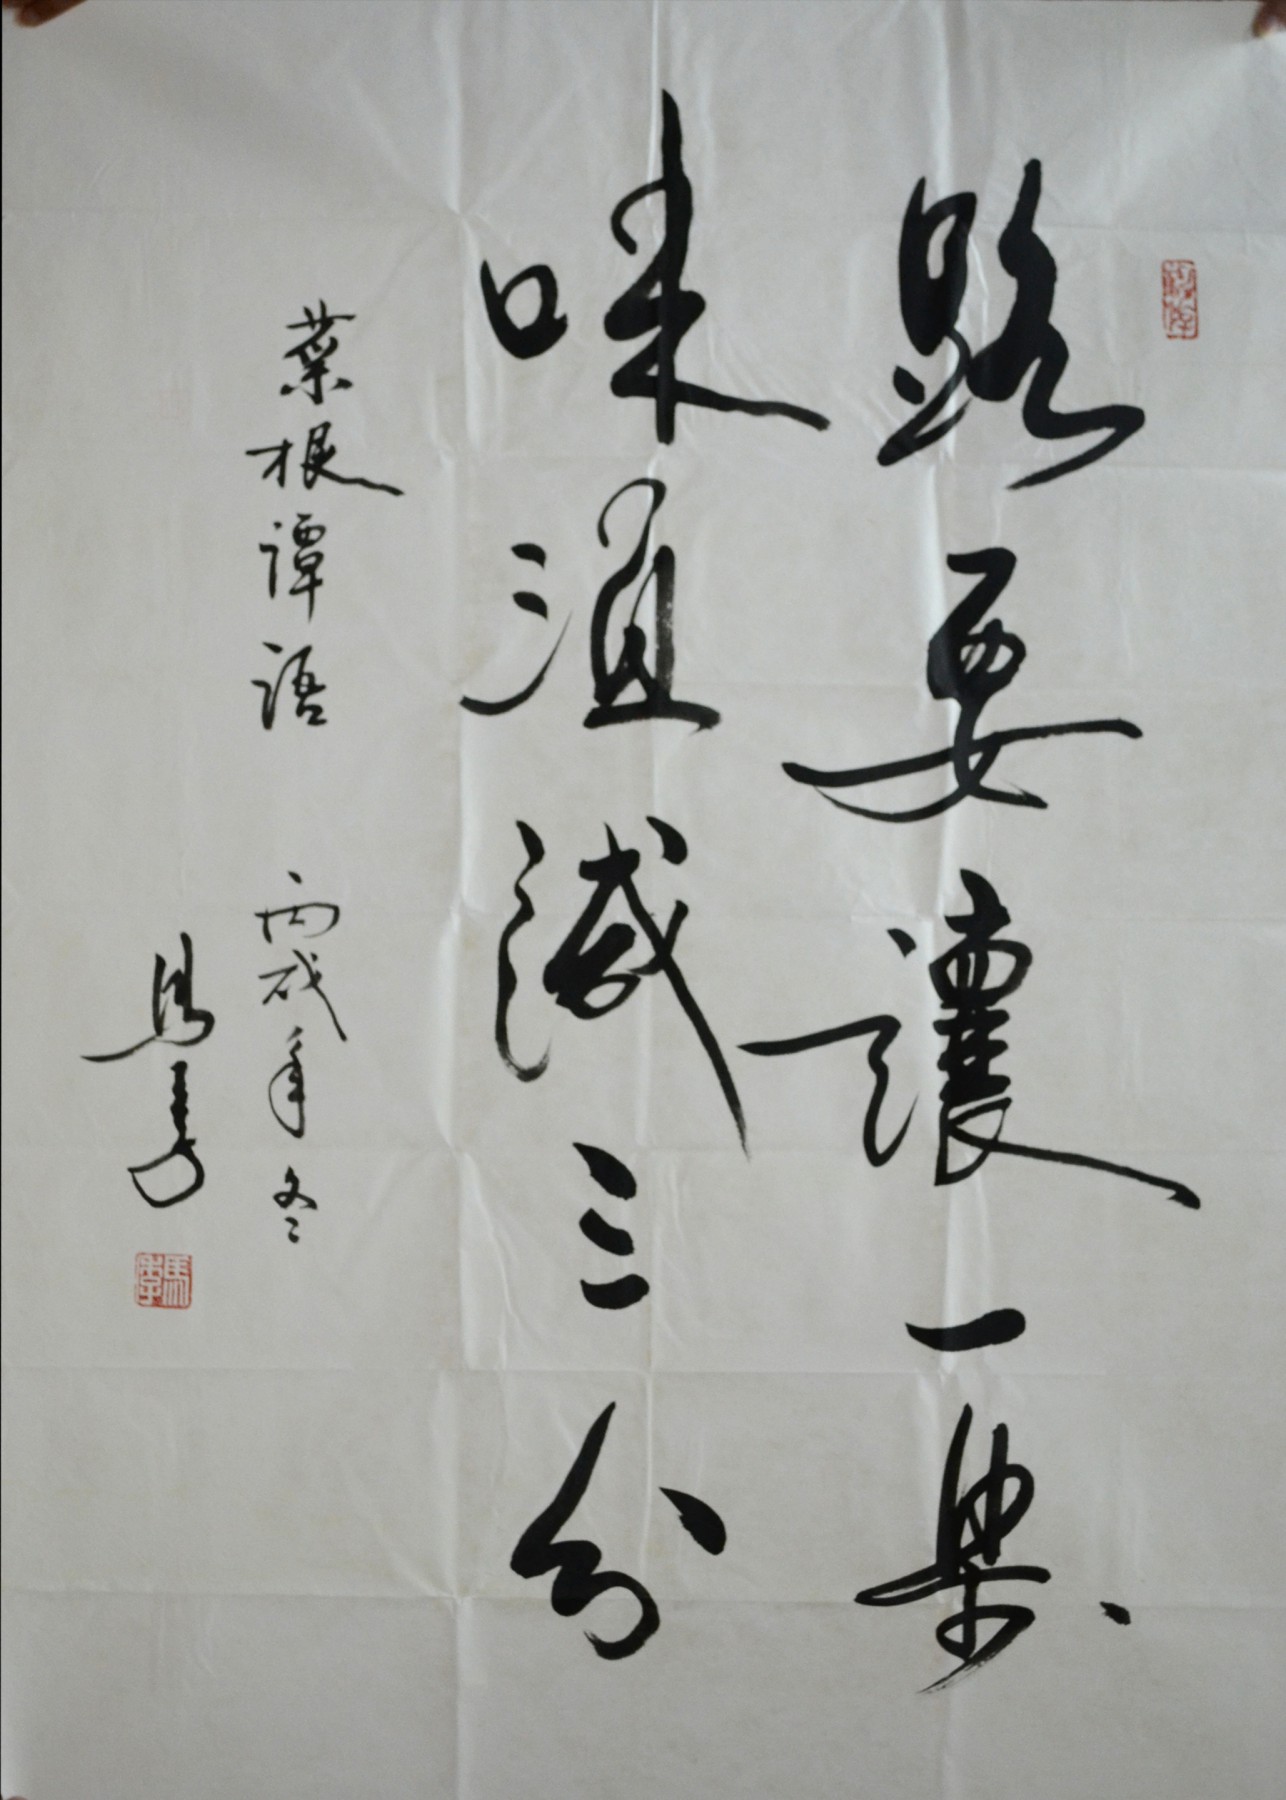 路要讓一步
味須減三分
菜根譚語 丙戌年冬
馬
馬